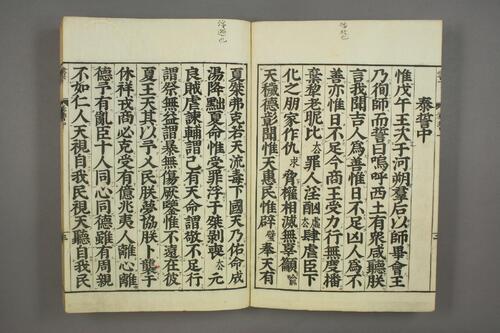 泰誓中
惟戊午王次于河朔羣后以師畢會王
乃徇師而誓曰嗚呼西土有衆咸聽朕
言我聞吉人爲善惟日不足凶人爲不
善亦惟日不足今商王受力行無度播
棄犂老昵比去罪人淫酗肆虐臣下
化之朋家作仇求脅權相滅無辜籲
天穢德彰聞惟天惠民惟辟璧奉天有
夏桀弗克若天流毒下國天乃佑命成
湯降黜夏命惟受罪浮于桀剝喪去元
良賊虐諫輔謂己有天命謂敬不足行
謂祭無益謂暴無傷厥鑒惟不遠在彼
夏王天其以予乂民朕夢協朕卜襲于
休祥戎商必克受有億兆夷人離心離
德予有亂臣十人同心同德雖有周親
不如仁人天視自我民視天聽自我民